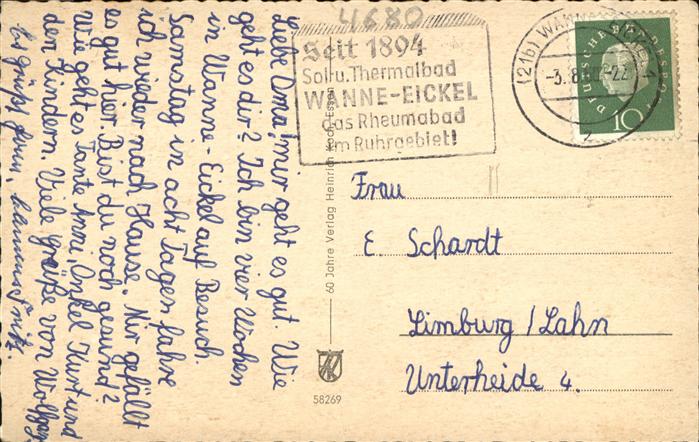 4680
Seit 1894
Sol-u. Thermalbad
WANNE-EICKEL
das Rheumabad
im Ruhrgebiet!
(21b) WANNE-EICKEL 1
-3.8.60-22
z
DEUTSCHE BUNDESPOST
10
Liebe Oma! mir geht es gut. Wie
geht es dir? Ich bin vier Wochen
in Wanne-Eickel auf Besuch.
Samstag in acht Tagen fahre
ich wieder nach Hause. Mir gefällt
es gut hier. Bist du noch gesund?
Wie geht es Tante Anni, Onkel Kurt und
den Kindern. Viele grüße von Wolfgang
Es grüßt
60 Jahre Verlag Heinrich Koch, Essen
58269
Frau
E. Schardt
Limburg/Lahn
Unterheide 4.